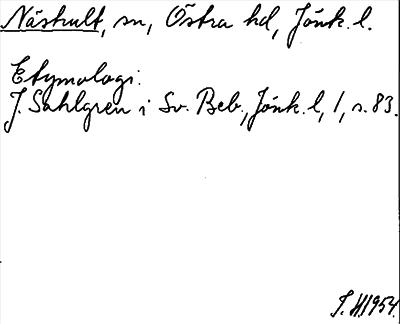 Näshult, sn, Östra hd, Jönk. l.
Etymologi:
J. Sahlgren i Sv. Beb., Jönk. l, 1, s. 83.
1954.